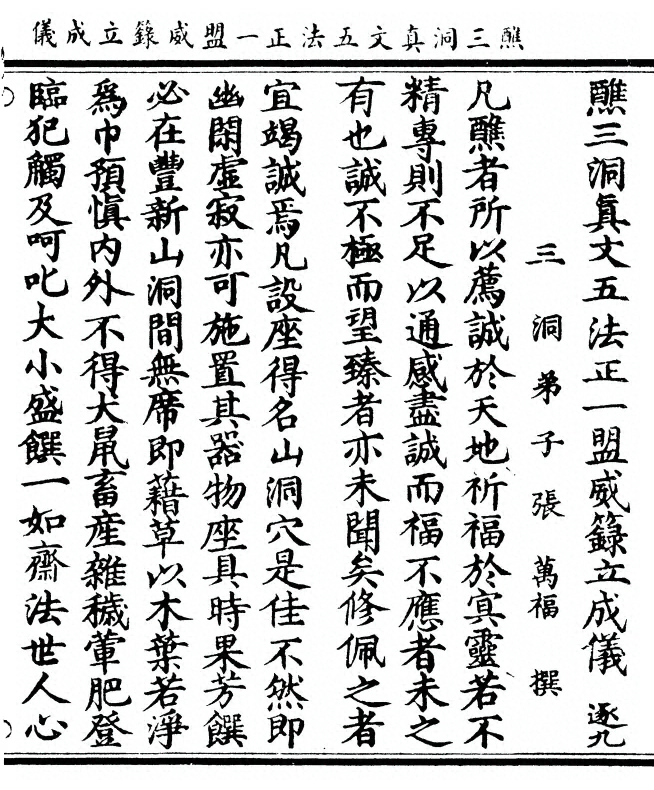 醮三洞真文五法正一盟威籙立成儀
醮三洞真文五法正一盟威籙立成儀 逐九
三洞弟子張萬福撰
凡醮者所以薦誠於天地祈福於冥靈若不
精專則不足以通感盡誠而福不應者未之
有也誠不極而望臻者亦未聞矣修佩之者
宜竭誠焉凡設座得名山洞穴是佳不然即
幽閑虛寂亦可施置其器物座具時果芳饌
必在豐新山洞間無席即藉草以木葉若淨
為巾預慎內外不得犬鼠畜產雜穢葷肥登
臨犯觸及呵叱大小盛饌一如齋法世人心